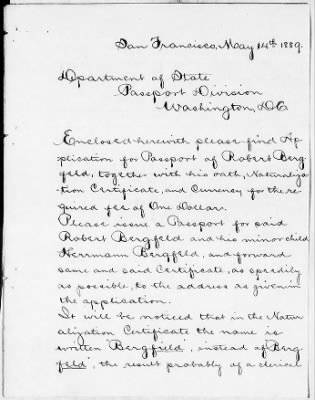 San Francisco, May 14th 1889.
Department of State
Passport Division
Washington, D.C.
Enclosed herewith please find Ap-
plication for Passport of Robert Berg-
feld, together with his oath, Naturaliza-
tion Certificate, and Currency for the re-
quired fee of One Dollar.
Please issue a Passport for said
Robert Bergfeld and his minor child
Herrmann Bergfeld, and forward
same and said Certificate, as speedily
as possible, to the address as given in
the application.
It will be noticed that in the Natur
alization Certificate the name is
written "Bergfield", instead of "Berg
feld", the result probably of a clerical